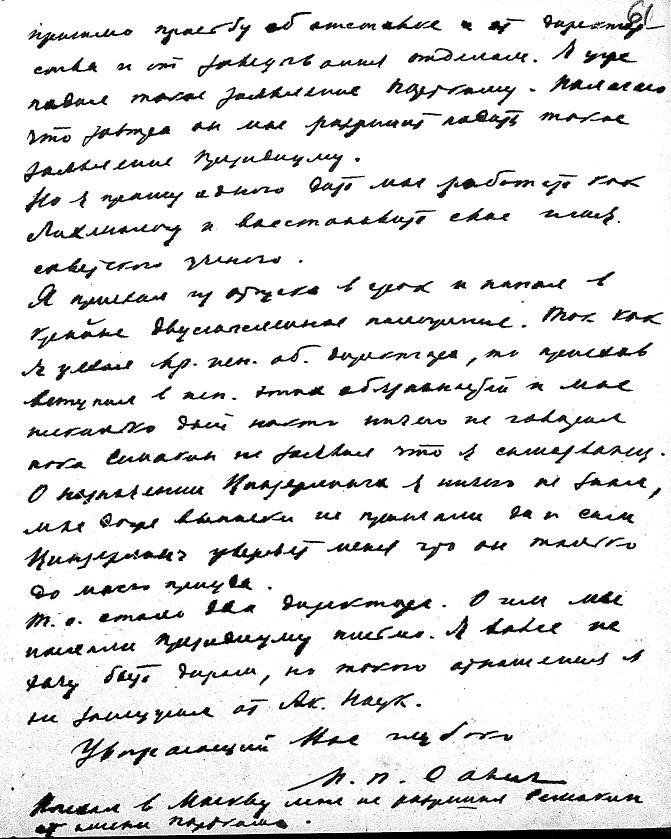 61
просьбу об отставке и от директор-
ства и от заведования отделом. Я уже
подал такое заявление Парткому. Полагаю
что завтра он мне разрешит подать такое
заявление Президиуму.
Но я прошу одного дать мне работать как
и восстановить свое имя
советского ученого.
Я приехал из отпуска в срок и попал в
крайне двусмысленное положение. Так как
я уехал вр. исп. об. директора, то приехав
вступил в исп. этих обязанностей и мне
несколько дней никто ничего не говорил
пока Симакин не заявил что я самозванец.
О назначении я ничего не знал,
мне даже выписки не прислали да и сам
уверяет меня что он только
до моего приезда.
Т. о. стало два директора. О чем мы
послали Президиуму письмо. Я вовсе не
хочу быть дирек, но такого отношения я
не заслужил от Ак. Наук.
Уважающий Вас глубоко
в Москву мне не разрешил Симакин
от имени парткома.